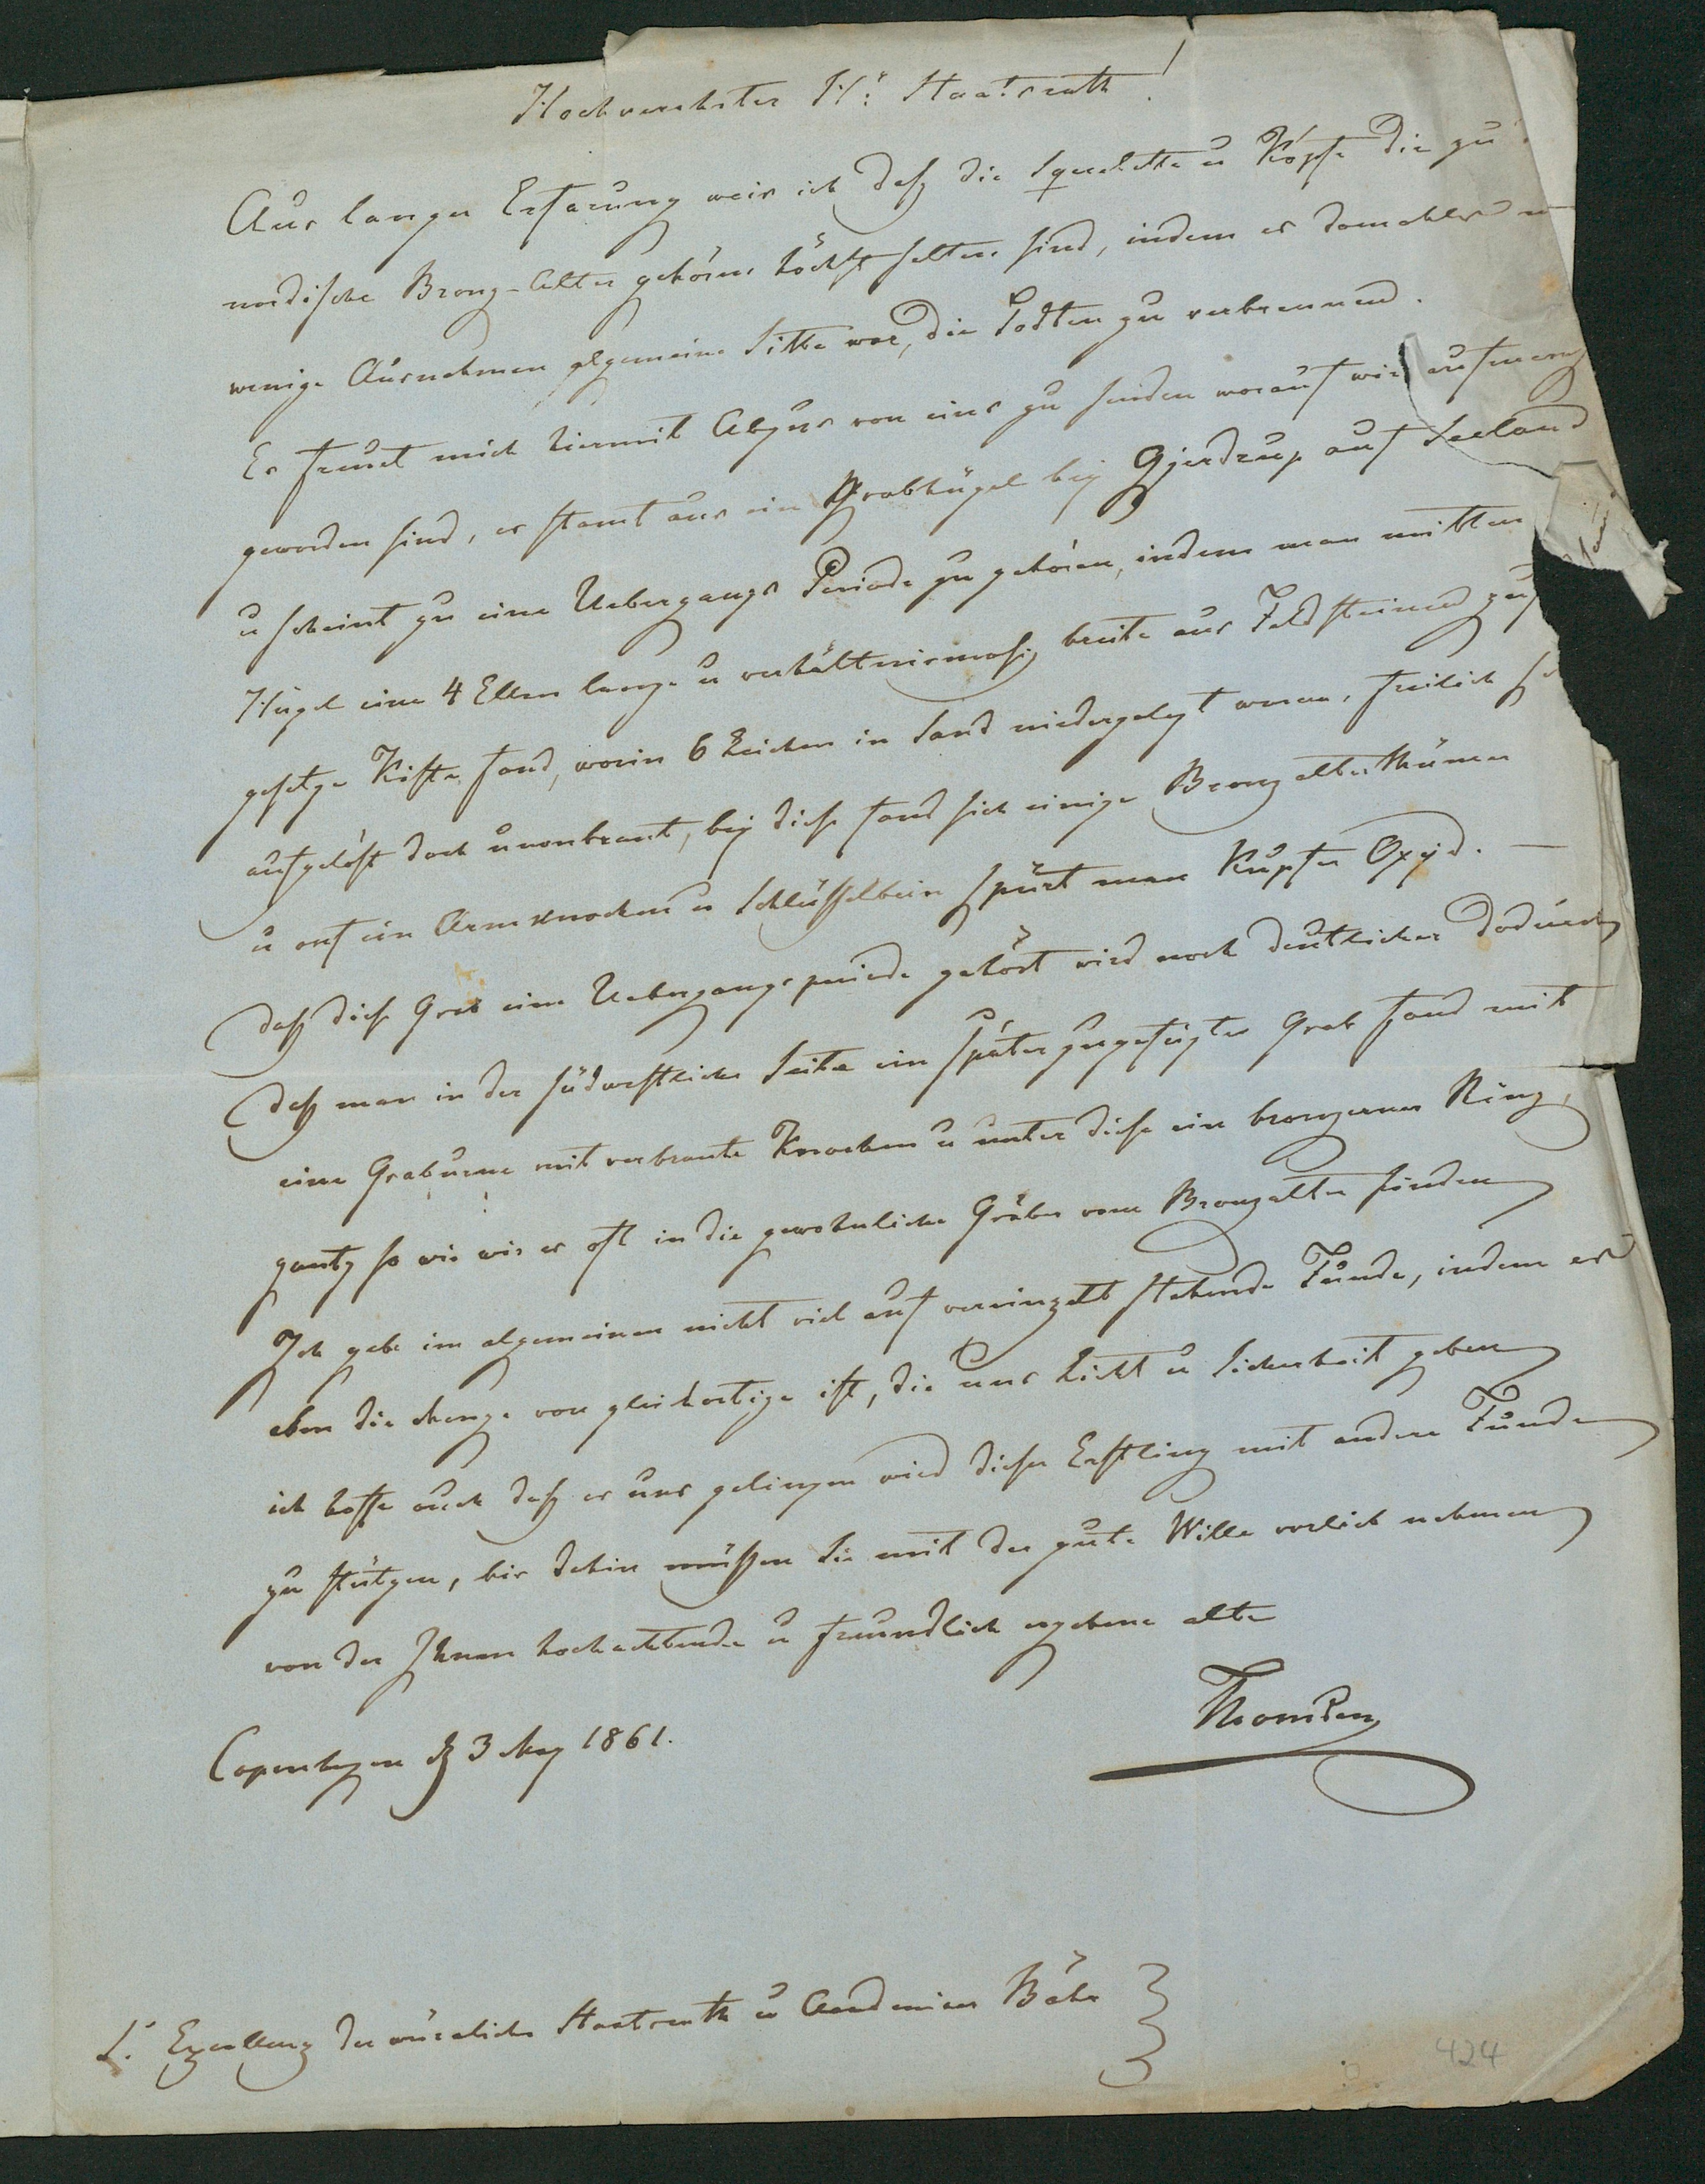 Hochverehrter Hr: Staatsrath!
Aus langer Erfarung weis ich daß die Squelette u Köpfe die zu
nordische Bronz-Alter gehören höchst selten sind, indem es damahls
wenige Ausnahmen algemeine Sitte war, die Todten zu verbrennen.
Es freuet mich hiermit Abgus von eins zu senden worauf wir aufmerg
geworden sind, es stamt aus ein Grabhügel bey Gjerdrup auf Seeland
u scheint zu eine Uebergangs Periode zu gehören, indem man mitten
Hügel eine 4 Ellen lange u verhältnismasig breite aus Feldsteinen zus
gesetze Kiste fand, worin 6 Leichen in Sand niedergelegt waren, freilich
aufgelöst doch unvonbrant, bey diese fand sich einige Bronzalterthümer
u auf ein Armknochen u Schlüsselbein spürt man Kupfer Oxyd. —
daß dies Grab eine Uebergangsperiode gehört wird noch deutlicher dadurch
daß man in der südwestliche Seite ein später zugefügtes Grab fand mit
eine Graburne mit verbrante Knochen u unter diese ein bronzernen Ring,
gantz so wie wir es oft in die gewohnliche Gräber vom Bronzalter finden
Ich gebe im algemeinen nicht viel auf vereinzelt stehende Funde, indem es
eben die Menge von gleichartige ist, die uns Licht u Sicherheit geben
ich hoffe auch daß es uns gelingen wird dieser Erstling mit andere Funde
zu stützen, bis dahin müßen Sie mit der gute Wille vorlieb nehmen
von der Ihnen hochachtende u freundlich ergebene alte
Thomsen
Copenhagen d 3 May 1861.
S. Excellenz der würcliche Staatsrath u Academicer Bähr
424